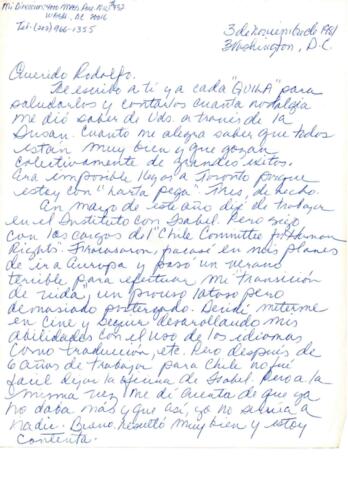 Mi Direccion: 4000 Mass Ave. N.W. # 932
Wash, DC 20016
Tel: (202) 966-1355
3 de noviembre de 1981
Washington, D.C.
Querido Rodolfo.
Te escribo a ti y a cada "QUILA" para
saludarlos y contarlos cuanta nostalgia
me dió saber de Uds. a través de la
Susan. Cuanto me alegra saber que todos
estan muy bien y que gozan
colectivamente de grandes exitos.
Era imposible llegar a Toronto porque
estoy con "harta pega". Tres, de hecho.
En mayo de este año dejé de trabajar
en el Instituto con Isabel. Pero sigo
con los cargos del "Chile Committee for Human
Rights". Fracasaron, fracasé en mis planes
de ir a Europa y pasó un verano
terrible para efectuar mi transición
de vida, un proceso latoso pero
demasiado postergado. Decidí meterme
en Cine y seguir desarollando mis
abilidades con el uso de los idiomas
como traducción, etc. Pero después de
6 años de trabajar para Chile no fué
facil dejar la oficina de Isabel. Pero a la
misma vez, me dí cuenta de que ya
no daba más y que así, yo no servía a
nadie. Bueno. Resultó muy bien y estoy
contenta.